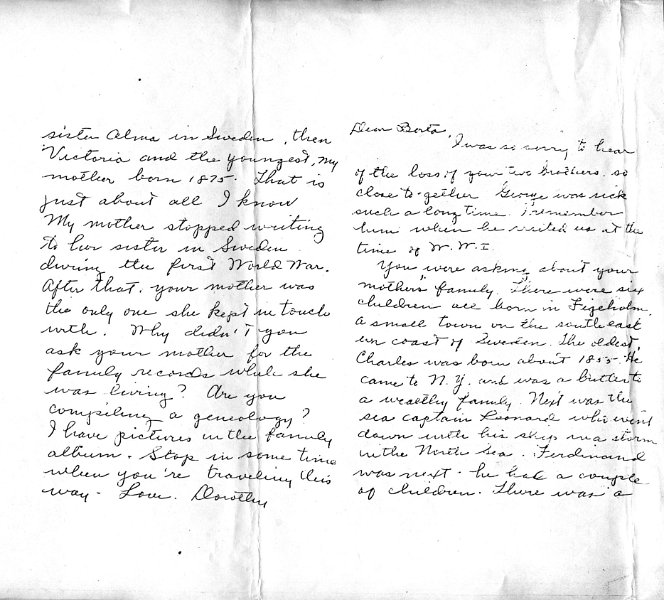 Dear Berta,
I was so sorry to hear
of the loss of your two brothers, so
close to-gether. George was sick
such a long time. I remember
him when he visited us at the
time of W.W.I.
You were asking about your
mother's family. There were six
children all born in Figeholm,
a small town on the southeast
ern coast of Sweden. The oldest,
Charles was born about 1855. He
came to N.Y. and was a butler to
a wealthy family. Next was the
sea captain Leonard who went
down with his ship in a storm
in the North Sea. Ferdinand
was next - he had a couple
of children. There was a
sister Alma in Sweden, then
Victoria and the youngest, my
mother born 1875. That is
just about all I know
My mother stopped writing
to her sister in Sweden
during the first World War.
After that, your mother was
the only one she kept in touch
with. Why didn't you
ask your mother for the
family records while she
was living? Are you
compiling a geneology?
I have pictures in the family
album. Stop in some time
when you're traveling this
way - Love. Dorothy